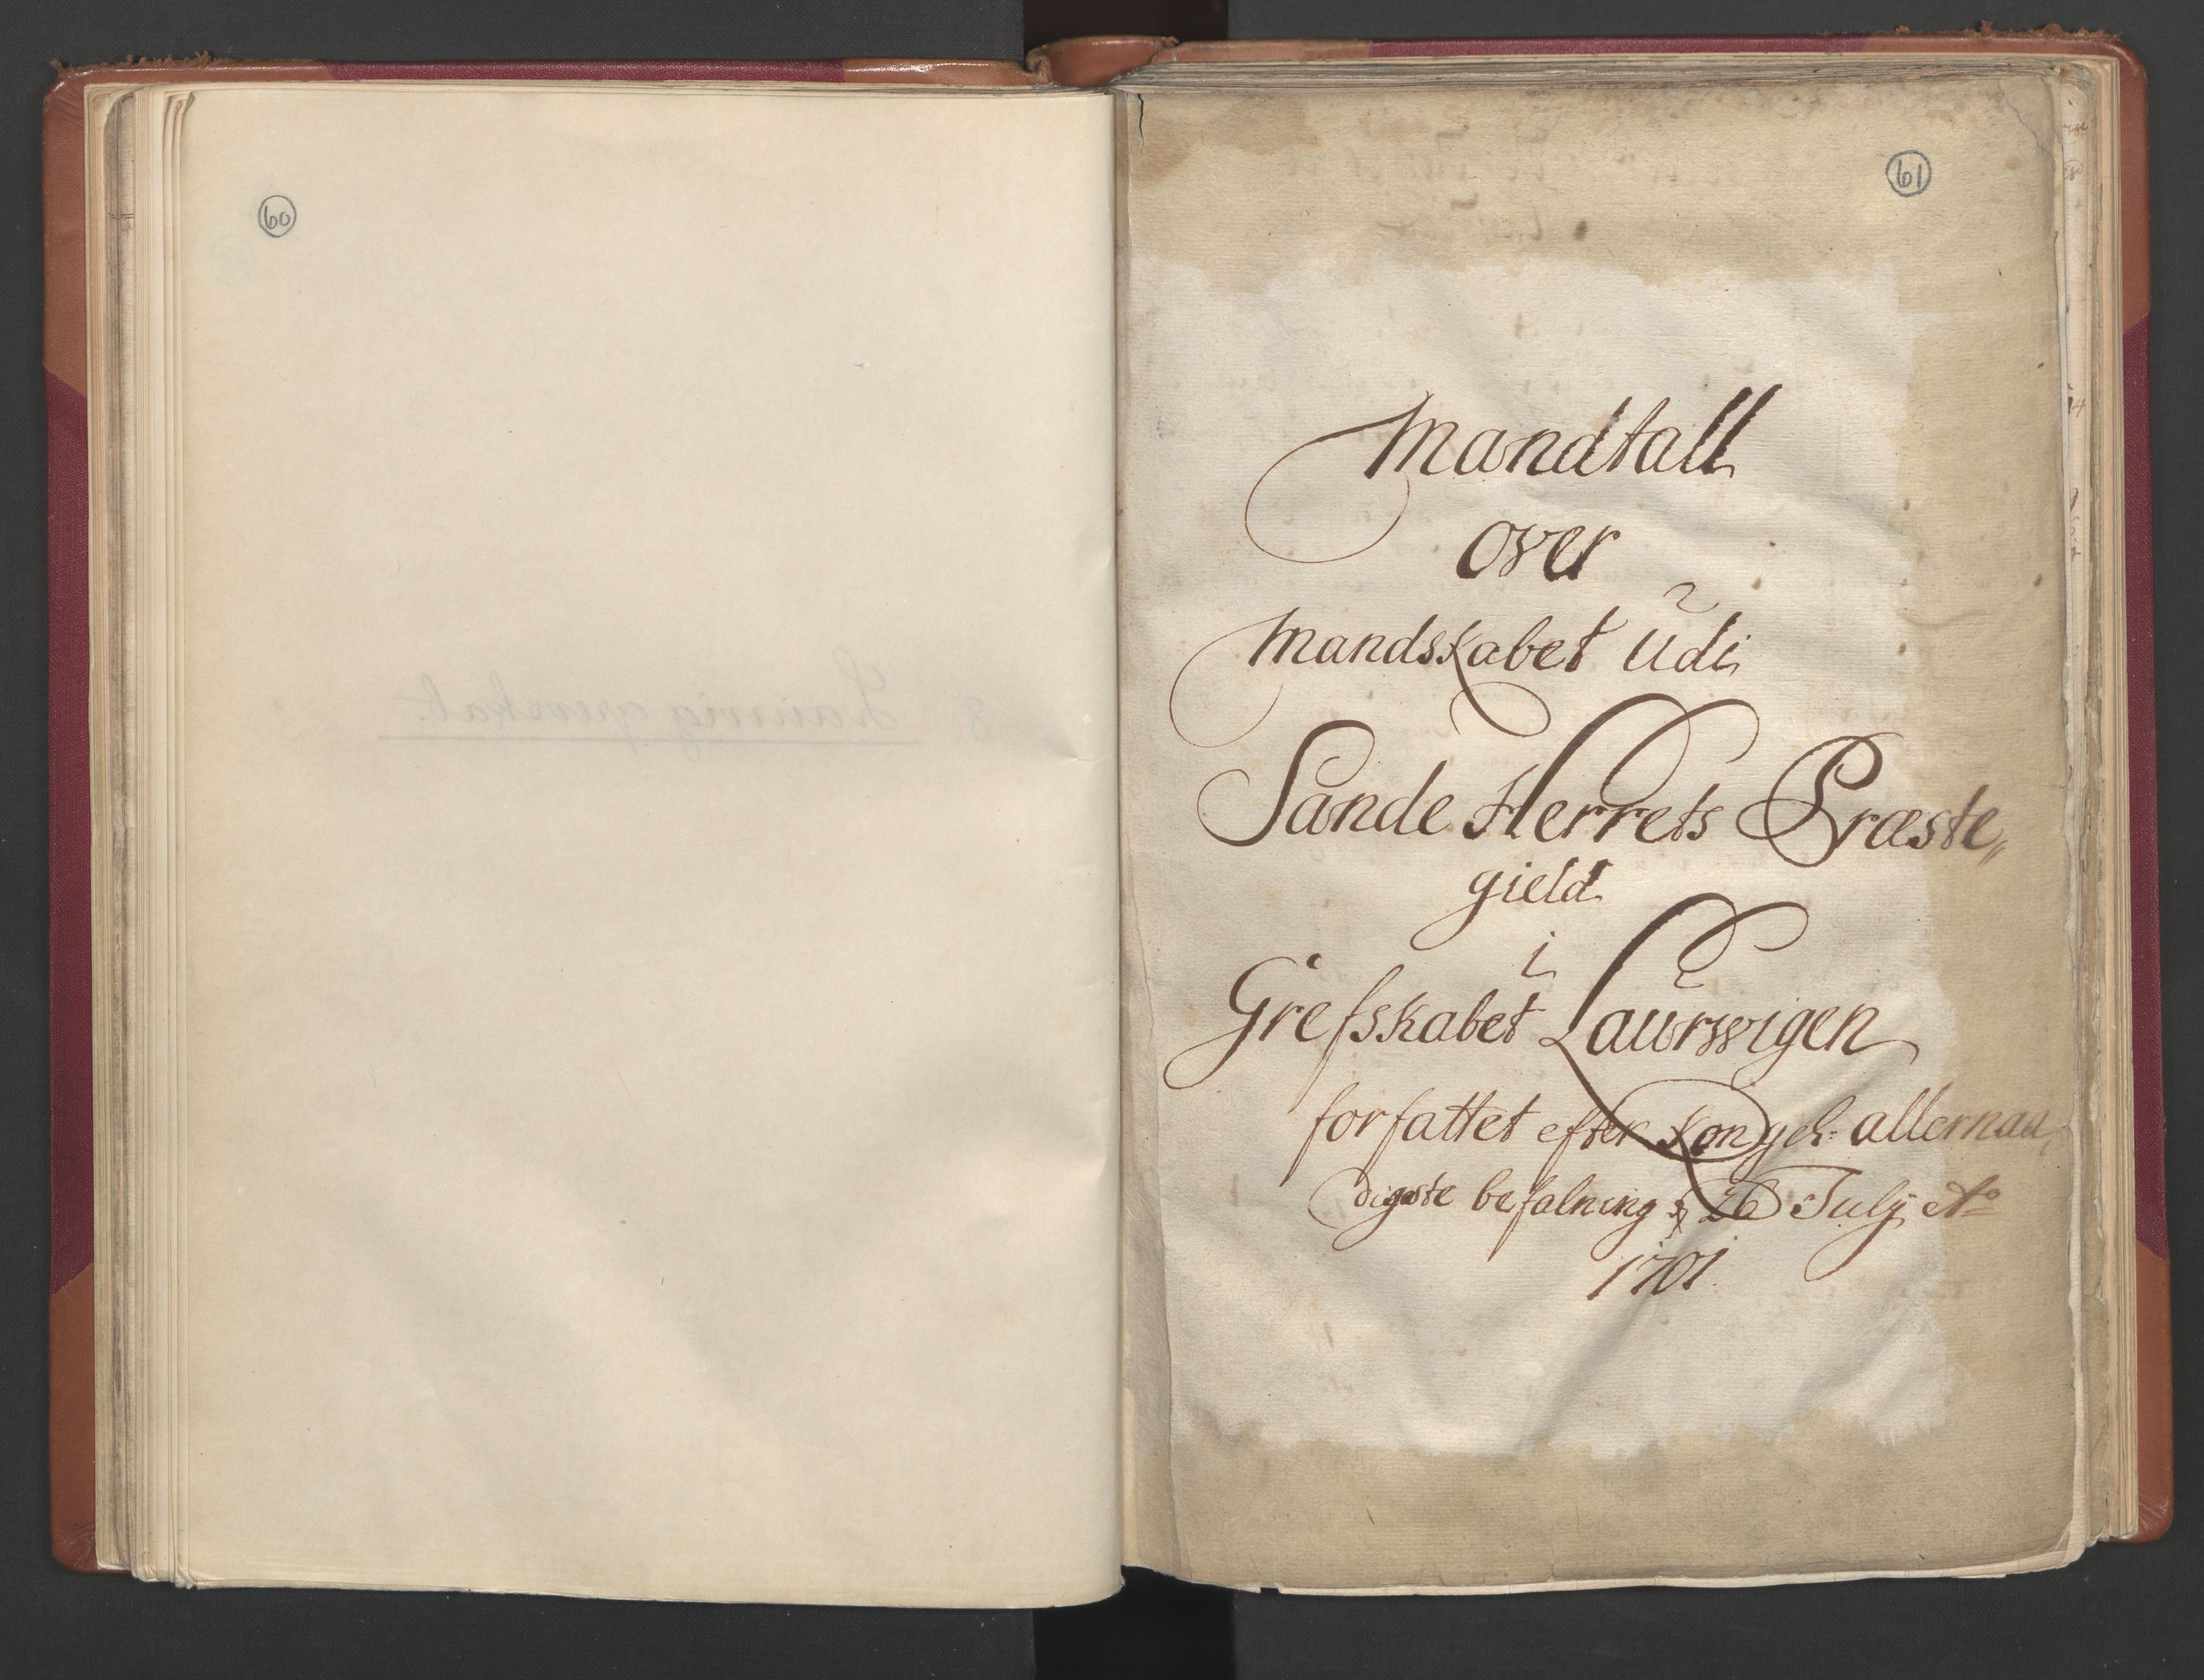 60
61
Mandtall
over
Mandskabet Udi
Sande Herrets Præste„
gield
i
Grefskabet Laurvigen
forfattet efter Kongel: allernaa„
digste befalning 26 Julÿ Ao
1701